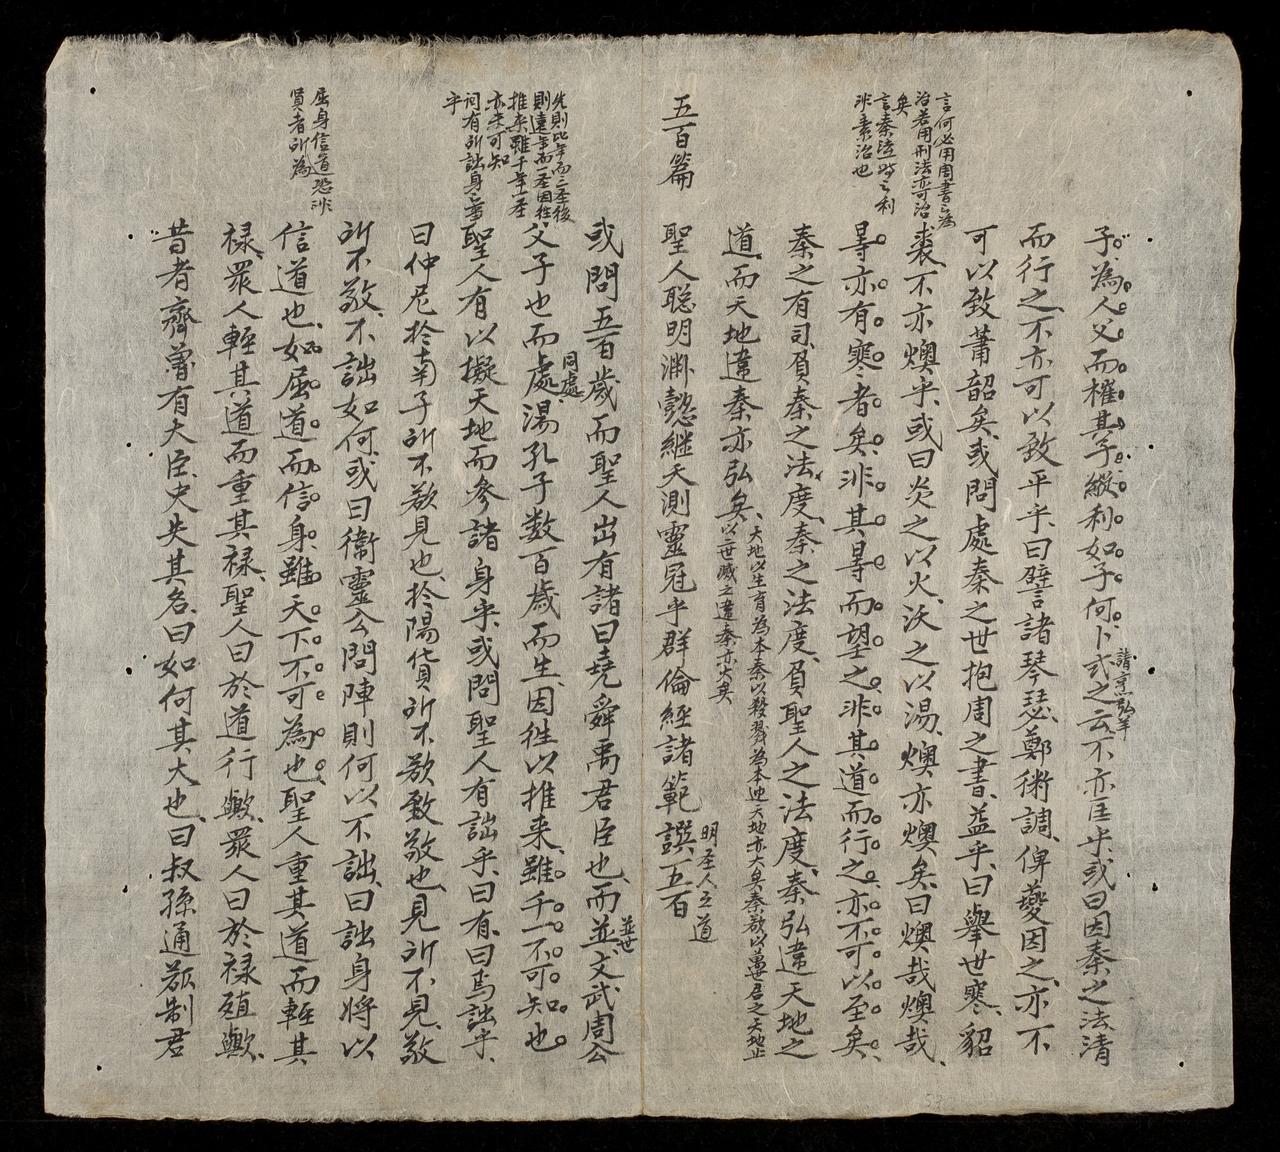 言何必用周書之為
治若用刑法亦可治
矣
言秦法時之利
非素治也
子為人父而榷其子縱利如子何卜式之云不亦匡乎或曰因秦之法清
請烹弘羊
而行之不亦可以致平乎曰譬諸琴瑟鄭術調俾夔因之亦不
可以致蕭韶矣或問處秦之世抱周之書益乎曰舉世寒貂
裘不亦燠乎或曰炎之以火沃之以湯燠亦燠矣曰燠哉燠哉
旹亦有寒者矣非其旹而望之非其道而行之亦不可以至矣
秦之有司負秦之法度秦之法度負聖人之法度秦弘違天地之
道而天地違秦亦弘矣
天地以生育為本秦以殺戮為本逆天地亦大矣秦欲以萬世君之天地止
以二世滅之違秦亦大矣
五百篇
聖人聰明淵懿継天測靈冠乎群倫經諸範譔五百
明圣人之道
或問五百歲而聖人出有諸曰堯舜禹君臣也而並文武周公
並世
先則比年而三圣後
則遠年而一圣因徃
推来雖千年一圣
亦未可知
父子也而處湯孔子数百歲而生因徃以推来雖千一不可知也
同處
詞有所詘身之意
乎
聖人有以擬天地而參諸身乎或問聖人有詘乎曰有曰焉詘乎
曰仲尼扵南子所不欲見也扵陽貨所不欲敬也見所不見敬
所不敬不詘如何或曰衛靈公問陣則何以不詘曰詘身將以
屈身信道恐非
賢者所為
信道也如屈道而信身雖天下不可為也聖人重其道而輕其
禄衆人輕其道而重其禄聖人曰於道行歟衆人曰於禄殖歟
昔者齊魯有大臣史失其名曰如何其大也曰叔孫通欲制君